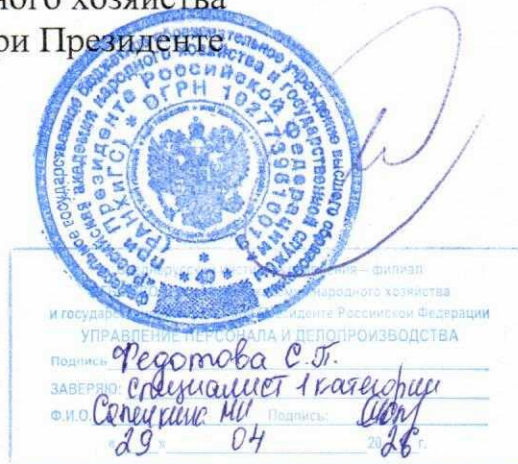 ного хозяйства
ри Президенте
Федеральное государственное бюджетное образовательное учреждение высшего
Российская академия народного хозяйства и государственной службы
при Президенте Российской Федерации
(РАНХиГС) * ОГРН 102773961001
* 40 *
филиал
народного хозяйства
и государс
зиденте Российской Федерации
УПРАВЛЕНИЕ ПЕРСОНАЛА И ДЕЛОПРОИЗВОДСТВА
Подпись Федотова С.П.
ЗАВЕРЯЮ: специалист 1 категории
Ф.И.О. НИ Подпись:
« 29 » 04 2026 г.